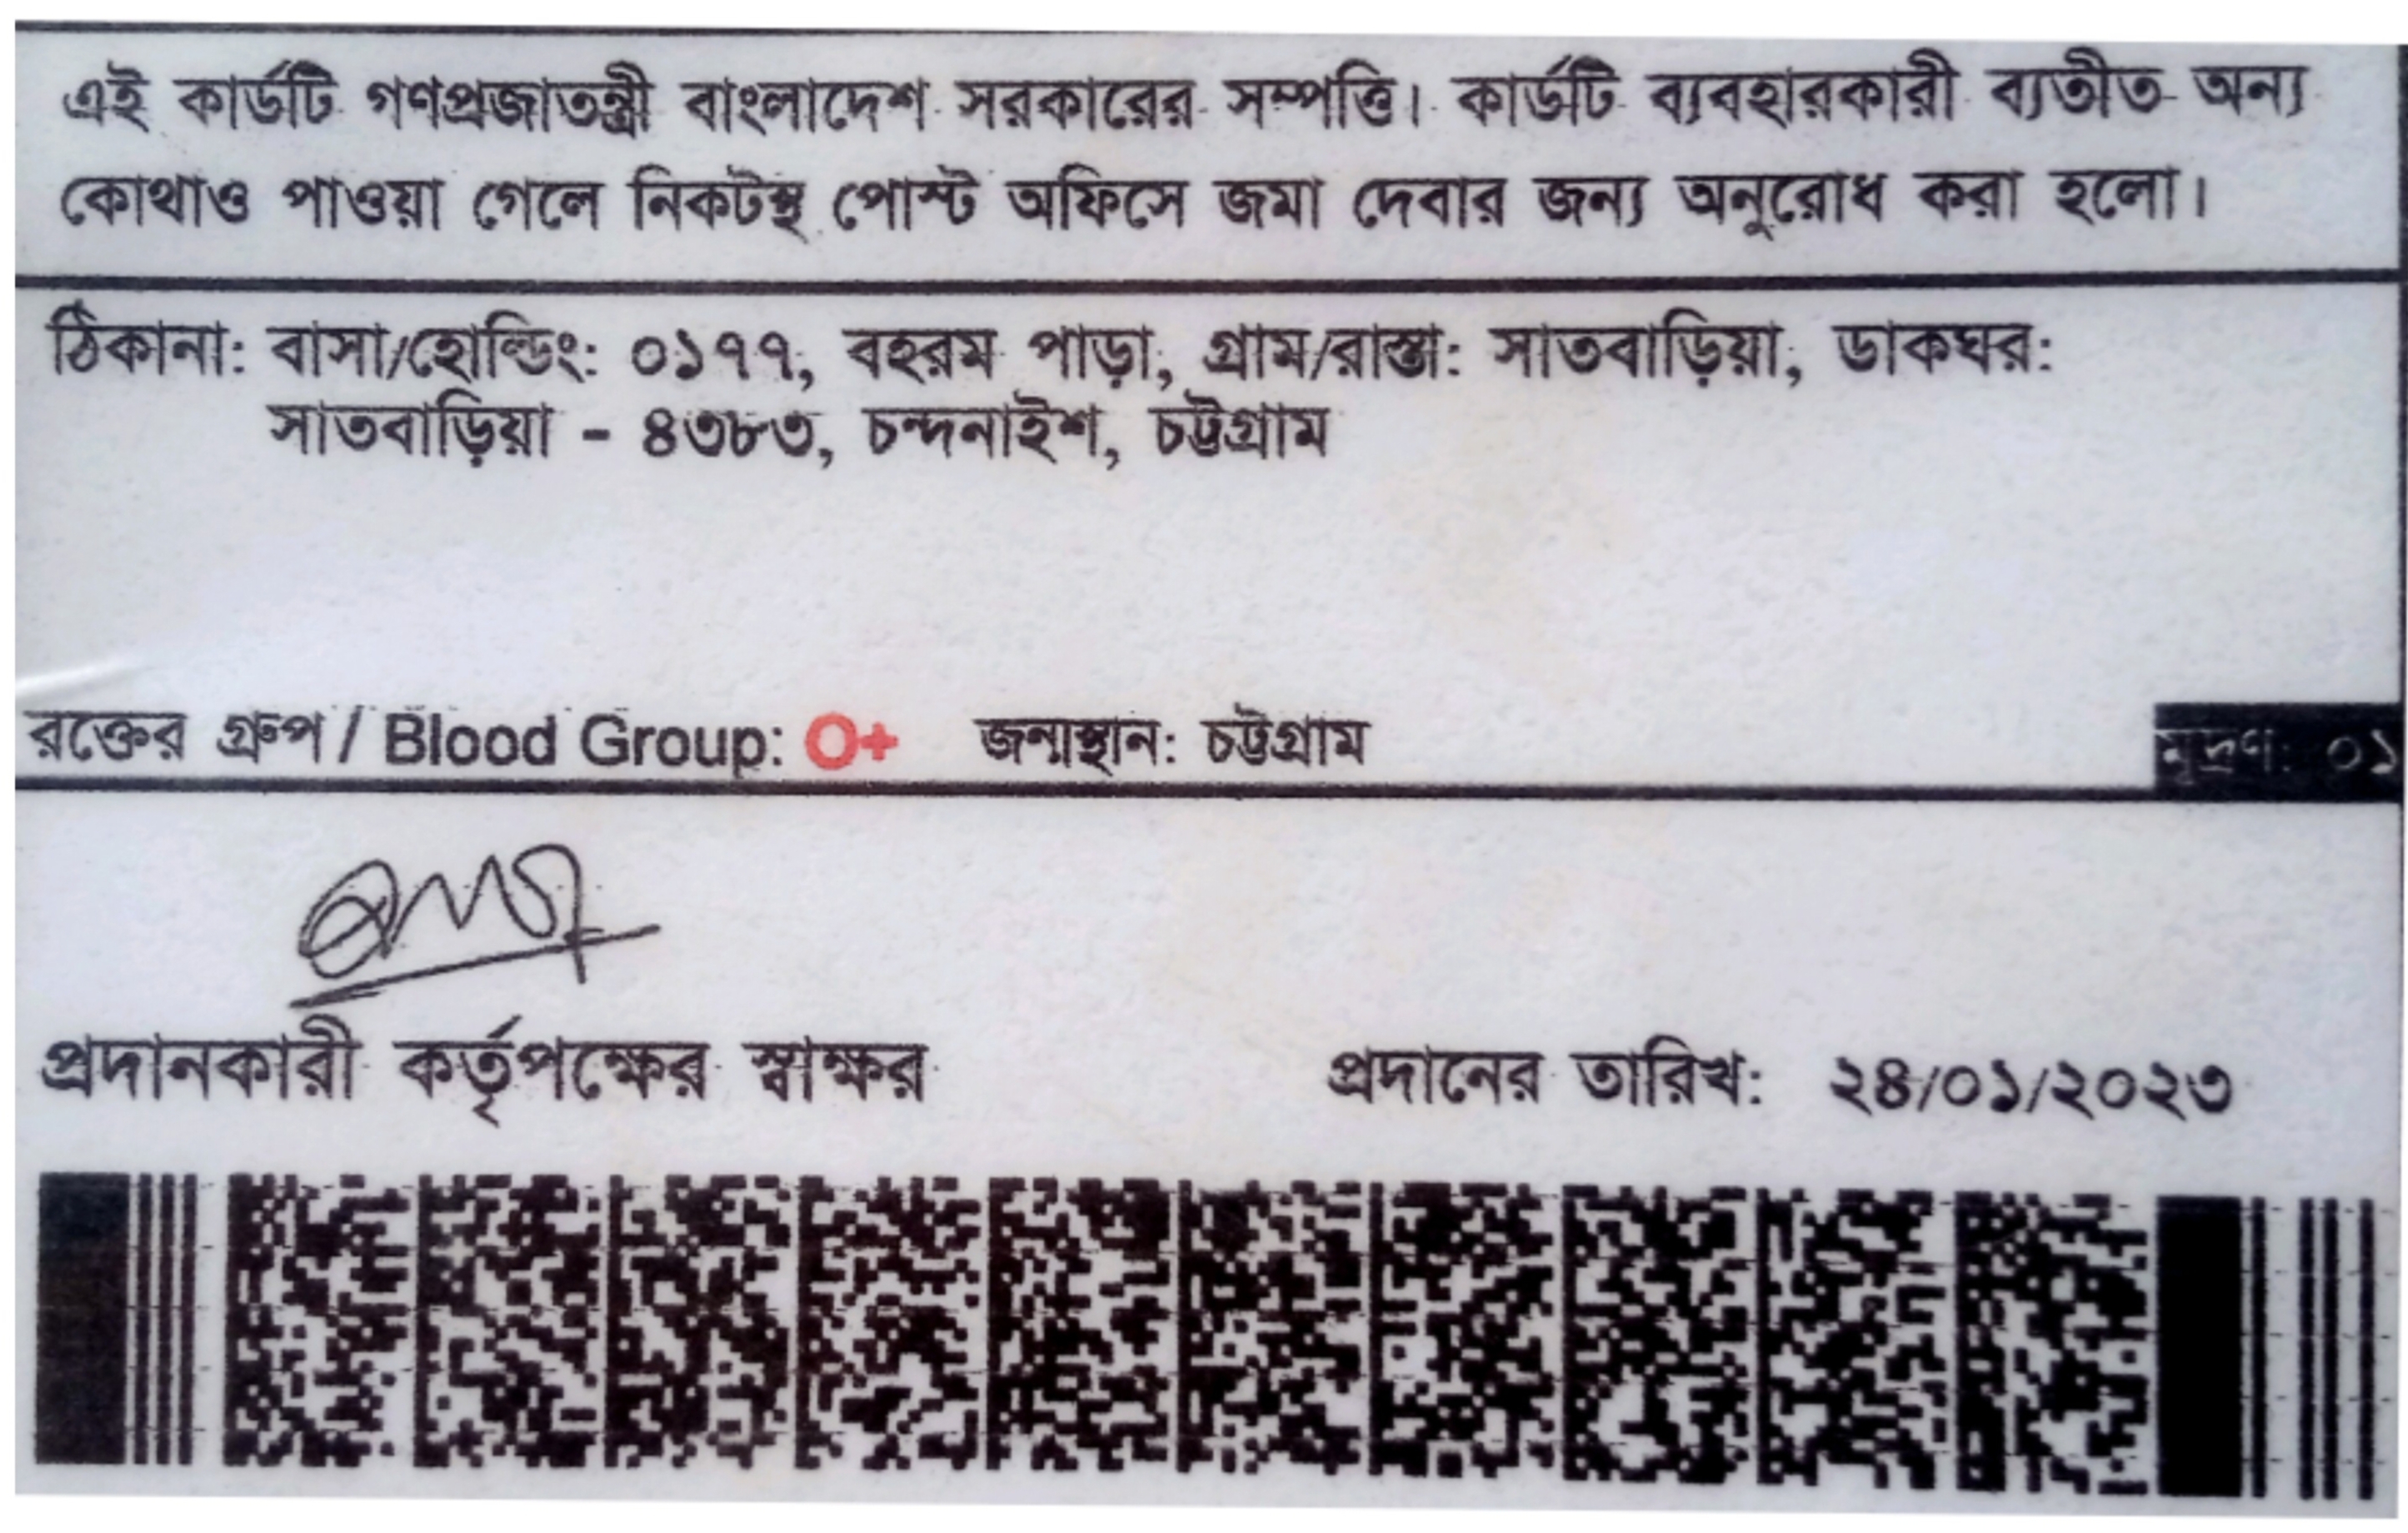 এই কার্ডটি গণপ্রজাতন্ত্রী বাংলাদেশ সরকারের সম্পত্তি। কার্ডটি ব্যবহারকারী ব্যতীত অন্য
কোথাও পাওয়া গেলে নিকটস্থ পোস্ট অফিসে জমা দেবার জন্য অনুরোধ করা হলো।
ঠিকানা: বাসা/হোল্ডিং: ০১৭৭, বহরম পাড়া, গ্রাম/রাস্তা: সাতবাড়িয়া, ডাকঘর:
সাতবাড়িয়া - ৪৩৮৩, চন্দনাইশ, চট্টগ্রাম
রক্তের গ্রুপ / Blood Group: O+ জন্মস্থান: চট্টগ্রাম মুদ্রণ: ০১
প্রদানকারী কর্তৃপক্ষের স্বাক্ষর প্রদানের তারিখ: ২৪/০১/২০২৩